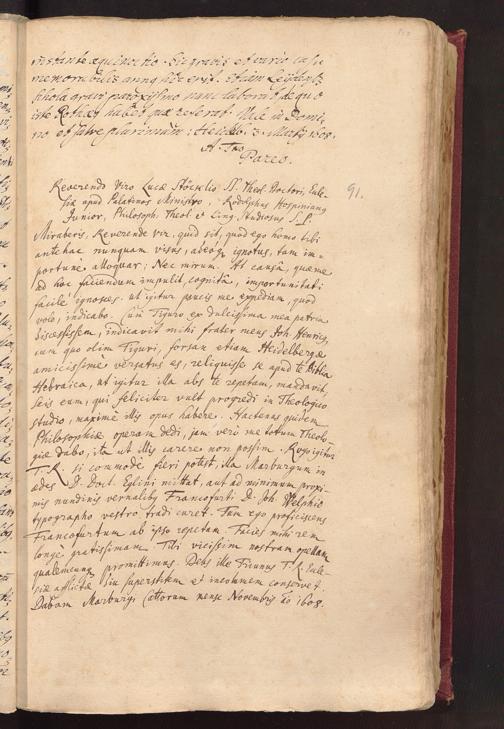 instante æquinoctio. Sic gravis et vario casu
memorabilis annus hic erit. Etiam
schola
iste habet quæ referat. Vale in Domi-
no et salve plurimum: Heidelb. 3. Martij 1608.
A Tuo
Pareo.
Reverendo Viro Lucæ Stöcklio SS. Theol. Doctori, Eule-
siæ apud Palatinos Ministro, Rodolphus Hospinianus
Junior, Philosoph. Theol. & Ling. Studiosus S. P.
91.
Miraberis, Reverende vir, quid sit, quod ego homo tibi
antehac nunquam visus, adeoq ignotus, tam im-
portunè alloquar; Nec mirum. At causa, quæ me
ad hoc faciendum impulit, cognita, importunitati
facilè ignosces. Ut igitur paucis me expediam, quod
volo, indicabo. Cùm Tiguro ex dulcissima mea patria
discessissem, indicavit mihi frater meus Joh. Henricq,
cum quo olim Tiguri, forsan etiam Heidelbergæ
amicissimè versatus es, reliquisse se apud te Biblia
Hebraica, ut igitur illa abs te repetam, mandavit,
scis eum, qui feliciter vult progredi in Theologico
studio, maximè illis opus habere. Hactenus quidem
Philosophiæ operam dedi, jam verò me totum Theolo-
giæ dabo, ita ut illis carere non possim. Rogo igitur
T. R. si commodè fieri potest, illa Marburgum in
ædes D. Doct. Eglini mittat, aut ad minimum proxi-
mis nundinis vernalibus Francofurti D. Joh. Welphio
typographo vestro tradi curet. Tum ego proficiscens
Francofurtum ab ipso repetam. Facies mihi rem
longè gratissimam. Tibi vicissim nostram opellam
qualemcunq promittimus. Deus ille T. R. Eule-
siæ afflictæ diu superstitem et incolumem conservet.
Dabam Marburgi Cattorum mense Novembris Aõ 1608.